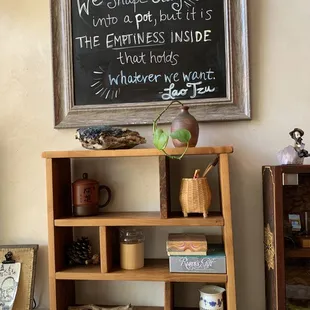 We shape clay
into a pot, but it is
THE EMPTINESS INSIDE
that holds
whatever we want.
Lao Tzu